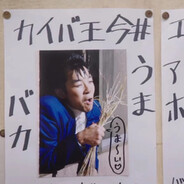 カイバ王今#
うま
バカ
うま〜い♡
エ
アホ